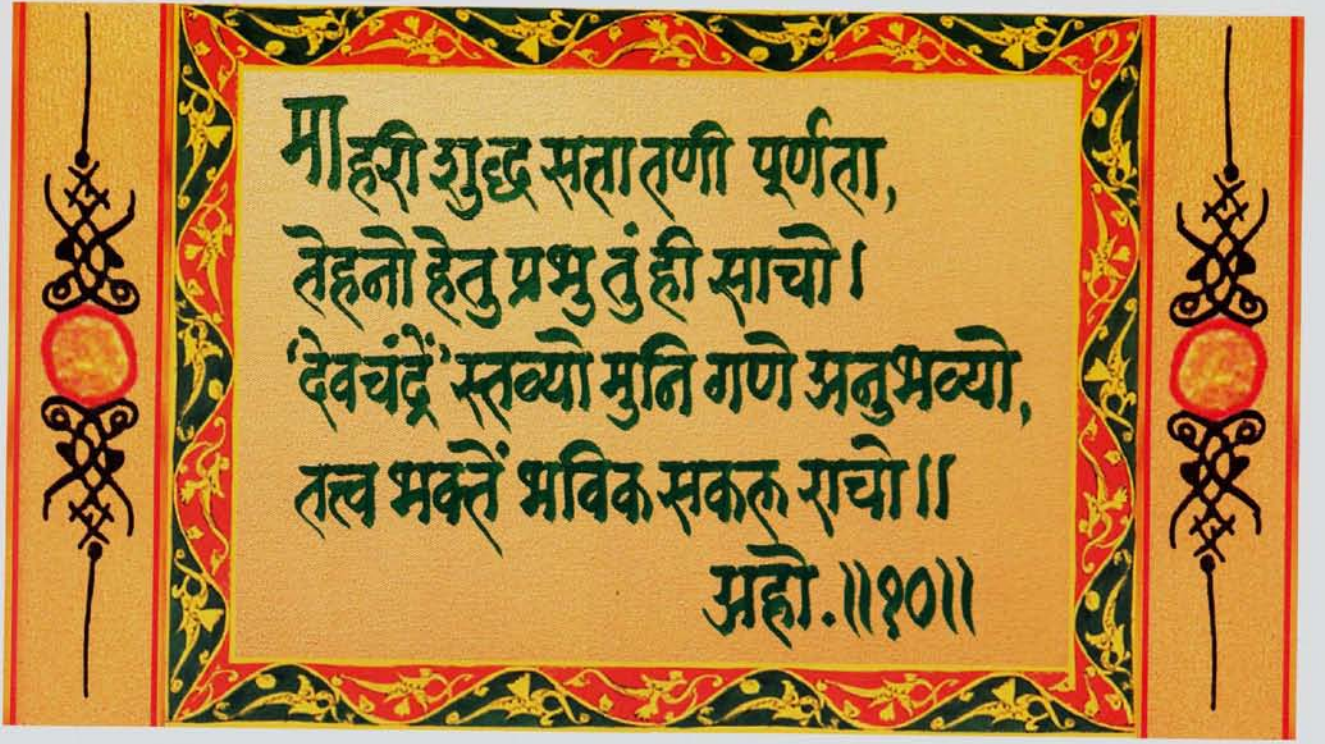 माहरी शुद्ध सत्ता तणी पूर्णता,
तेहनो हेतु प्रभु तुं ही साचो।
‘देवचंद्रें’ स्तव्यो मुनि गणे अनुभव्यो,
तत्त्व भक्तें भविक सकल राचो॥
अहो.॥१०॥